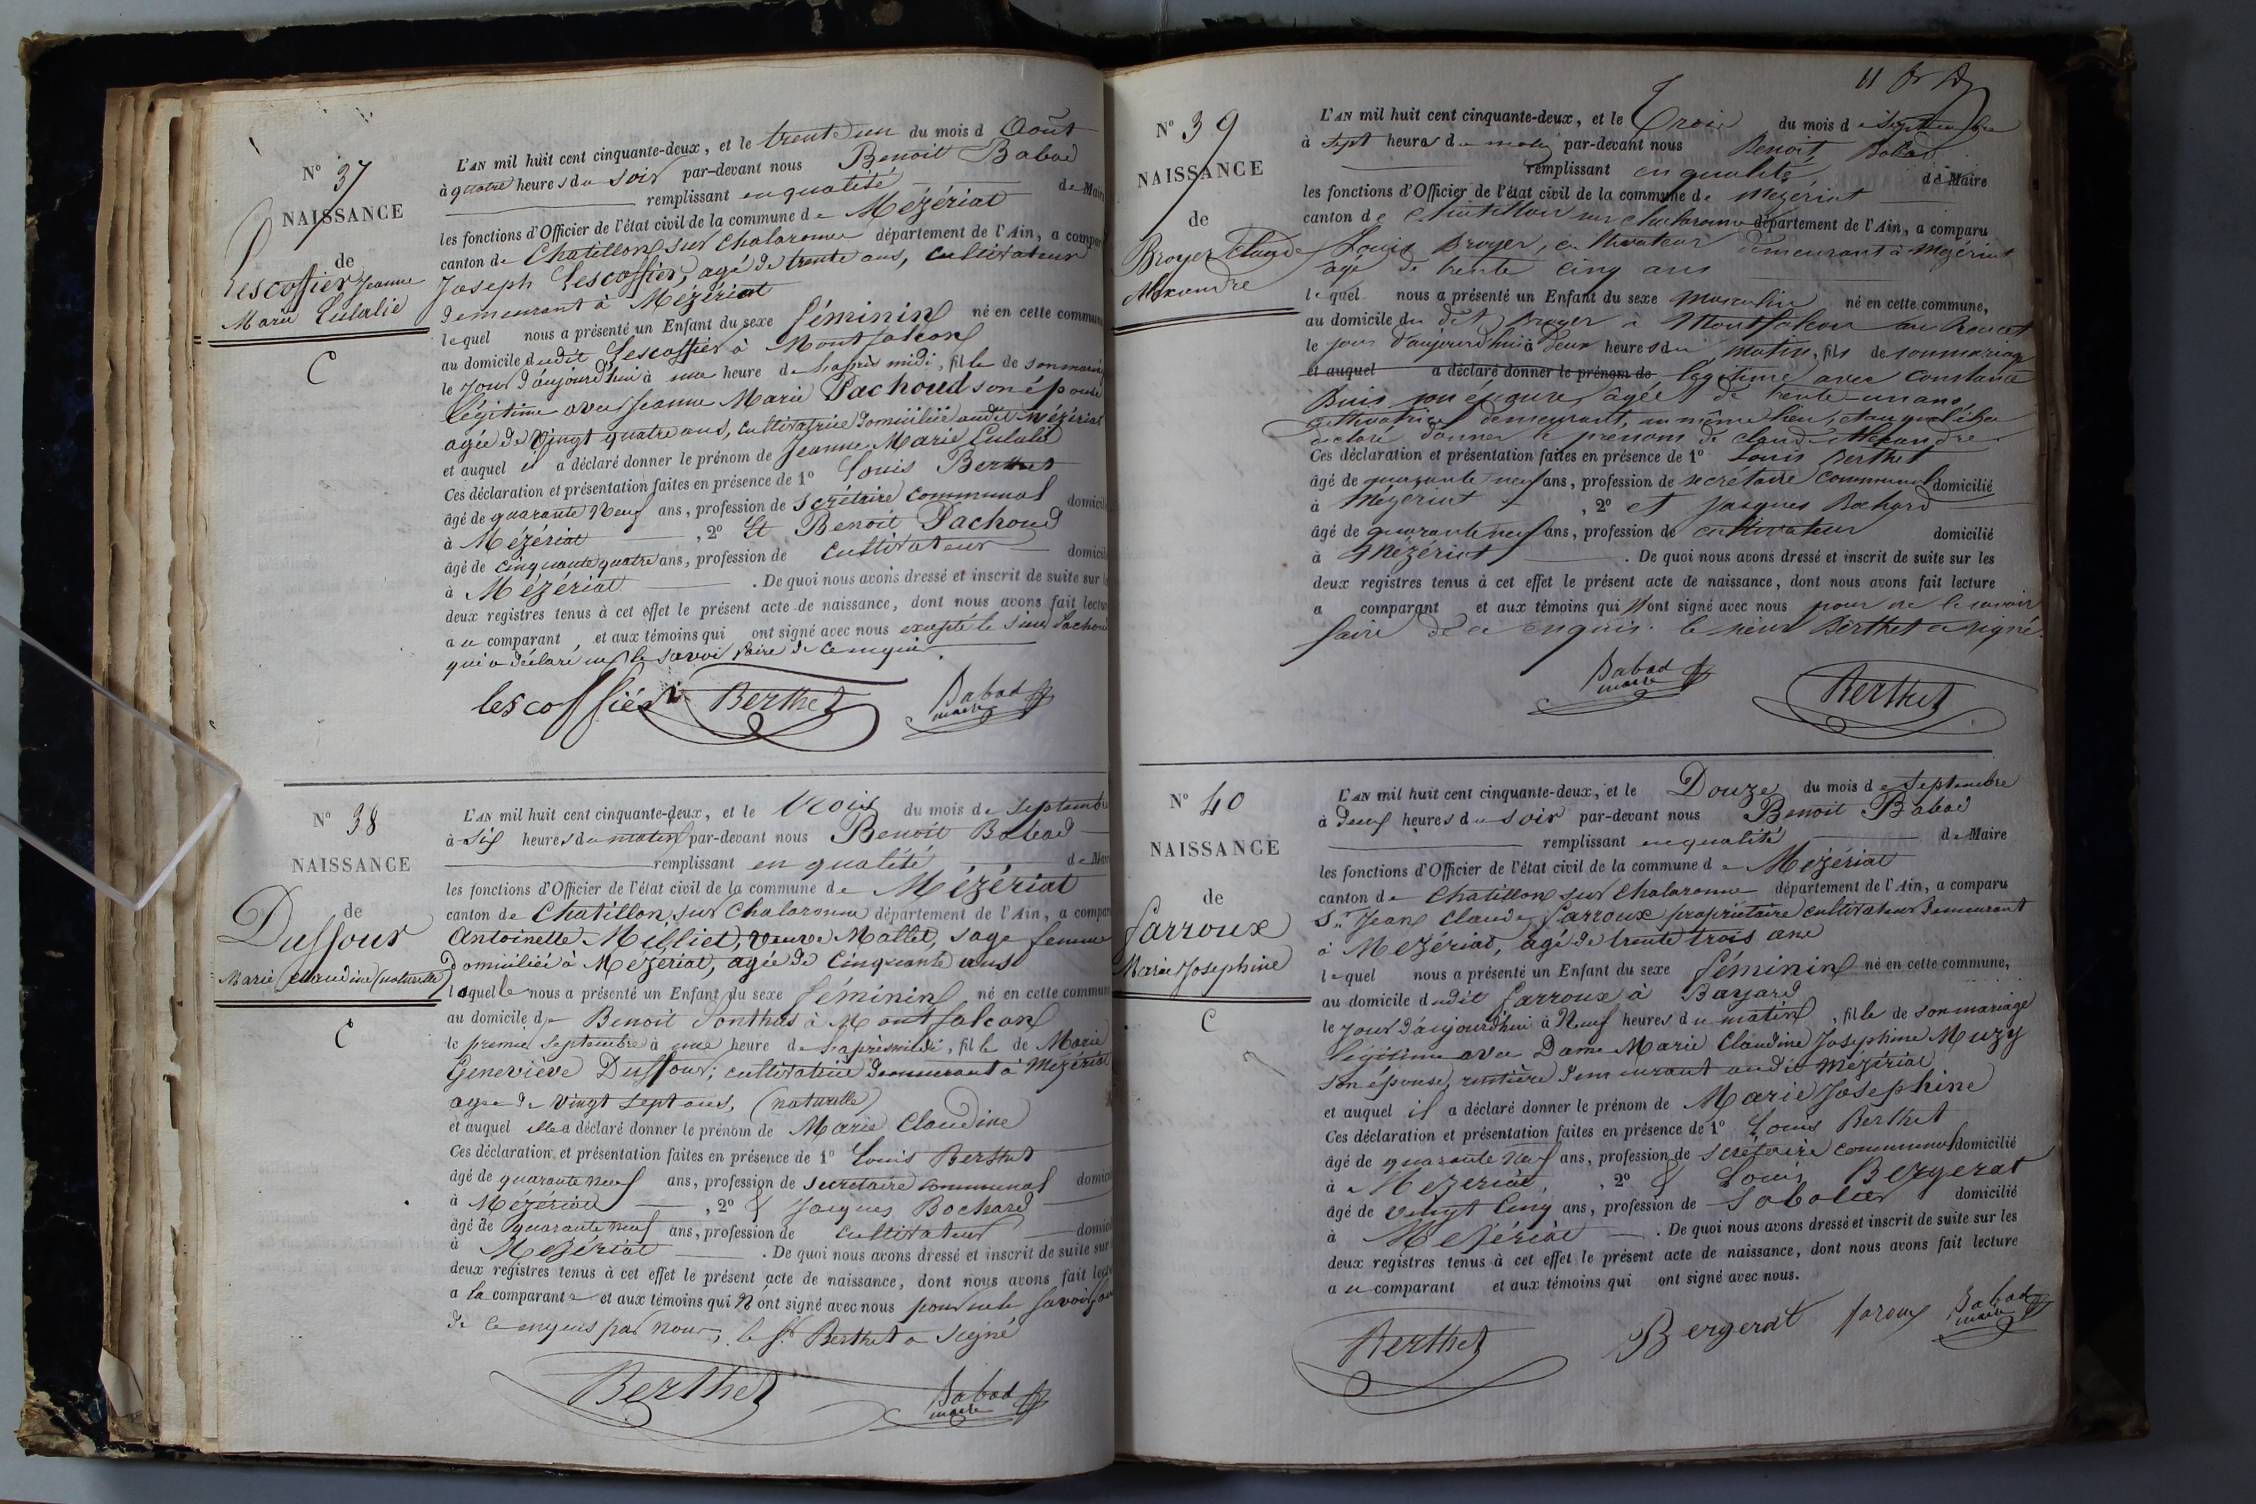 N° 37
NAISSANCE
de
Lescoffier Jeanne
Marie Eulalie
C
L'AN mil huit cent cinquante-deux, et le trente un du mois d Août
à quatre heures du soir par-devant nous Benoit Babad
remplissant en qualité de Maire
les fonctions d'Officier de l'état civil de la commune de Mézériat
canton de Chatillon sur Chalaronne département de l'Ain, a compar
Joseph Lescoffier, agé de trente ans, cultivateur
demeurant à Mézériat
lequel nous a présenté un Enfant du sexe féminin né en cette commune
au domicile dudit Lescoffier à Montfalcon
le jour d'aujourd'hui à une heure de l'après midi, fille de son mariage
légitime avec Jeanne Marie Pachoud son épouse
agée de vingt quatre ans, cultivatrice domiciliée audit Mézériat
et auquel il a déclaré donner le prénom de Jeanne Marie Eulalie
Ces déclaration et présentation faites en présence de 1° Louis Berthet
âgé de quarante neuf ans, profession de secrétaire communal domicil
à Mézériat , 2° Et Benoit Pachoud
âgé de cinquante quatre ans, profession de cultivateur domicil
à Mézériat . De quoi nous avons dressé et inscrit de suite sur l
deux registres tenus à cet effet le présent acte de naissance, dont nous avons fait lectur
a u comparant et aux témoins qui ont signé avec nous excepté le sieur Pachoud
qui a déclaré ne le savoir faire de ce enquis
lescoffiér Berthet Babad
maire
N° 38
NAISSANCE
de
Duffour
Marie Claudine (naturelle)
C
L'AN mil huit cent cinquante-deux, et le trois du mois de septembre
à six heures du matin par-devant nous Benoit Babad
remplissant en qualité de Mair
les fonctions d'Officier de l'état civil de la commune de Mézériat
canton de Chatillon sur Chalaronne département de l'Ain, a compar
Antoinette Milliet, veuve Mallet, sage femme
domiciliée à Mézériat, agée de cinquante ans
laquelle nous a présenté un Enfant du sexe féminin né en cette commune
au domicile de Benoit Ponthus à Montfalcon
le premier septembre à une heure de l'après midi, fille de Marie
Geneviève Duffour, cultivatrice demeurant à Mézériat
agée de vingt sept ans, (naturelle)
et auquel elle a déclaré donner le prénom de Marie Claudine
Ces déclaration et présentation faites en présence de 1° Louis Berthet
âgé de quarante neuf ans, profession de secrétaire communal domici
à Mézériat , 2° & Jacques Bochard
âgé de quarante neuf ans, profession de cultivateur domici
à Mézériat . De quoi nous avons dressé et inscrit de suite sur
deux registres tenus à cet effet le présent acte de naissance, dont nous avons fait lect
a la comparante et aux témoins qui N'ont signé avec nous pour ne le savoir faire
de ce enquis par nous, le Sr Berthet a signé
Berthet Babad
maire
11 
N° 39
NAISSANCE
de
Broyer Claude
Alexandre
L'AN mil huit cent cinquante-deux, et le Trois du mois de Septembre
à sept heures du matin par-devant nous Benoit Babad
remplissant en qualité de Maire
les fonctions d'Officier de l'état civil de la commune de Mézériat
canton de Chatillon sur Chalaronne département de l'Ain, a comparu
Louis Broyer, cultivateur demeurant à Mézériat
agé de trente cinq ans
lequel nous a présenté un Enfant du sexe masculin né en cette commune,
au domicile du dit Broyer à Montfalcon
le jour d'aujourd'hui à deux heures du matin, fils de son mariage
et auquel a déclaré donner le prénom de légitime avec Constance
Buis son épouse, agée de trente un ans
cultivatrice demeurant au même lieu, et auquel il a
déclaré donner le prénom de Claude Alexandre
Ces déclaration et présentation faites en présence de 1° Louis Berthet
âgé de quarante neuf ans, profession de secrétaire communal domicilié
à Mézériat , 2° et Jacques Bochard
âgé de quarante neuf ans, profession de cultivateur domicilié
à Mézériat . De quoi nous avons dressé et inscrit de suite sur les
deux registres tenus à cet effet le présent acte de naissance, dont nous avons fait lecture
a comparant et aux témoins qui N'ont signé avec nous pour ne le savoir
faire de ce enquis. le sieur Berthet a signé.
Babad
maire
Berthet
N° 40
NAISSANCE
de
Farroux
Marie Josephine
C
L'AN mil huit cent cinquante-deux, et le Douze du mois de Septembre
à deux heures du soir par-devant nous Benoit Babad
remplissant en qualité de Maire
les fonctions d'Officier de l'état civil de la commune de Mézériat
canton de Chatillon sur Chalaronne département de l'Ain, a comparu
Sr Jean Claude Farroux propriétaire cultivateur demeurant
à Mézériat, agé de trente trois ans
lequel nous a présenté un Enfant du sexe féminin né en cette commune,
au domicile dudit Farroux à Bayard
le jour d'aujourd'hui à Neuf heures du matin, fille de son mariage
légitime avec Dame Marie Claudine Josephine Muzy
son épouse, rentière demeurant audit Mézériat
et auquel il a déclaré donner le prénom de Marie Josephine
Ces déclaration et présentation faites en présence de 1° Louis Berthet
âgé de quarante neuf ans, profession de secrétaire communal domicilié
à Mézériat, 2° & Louis Bergerat
âgé de vingt cinq ans, profession de Sabotier domicilié
à Mézériat . De quoi nous avons dressé et inscrit de suite sur les
deux registres tenus à cet effet le présent acte de naissance, dont nous avons fait lecture
a u comparant et aux témoins qui ont signé avec nous.
Berthet Bergerat faroux Babad
maire